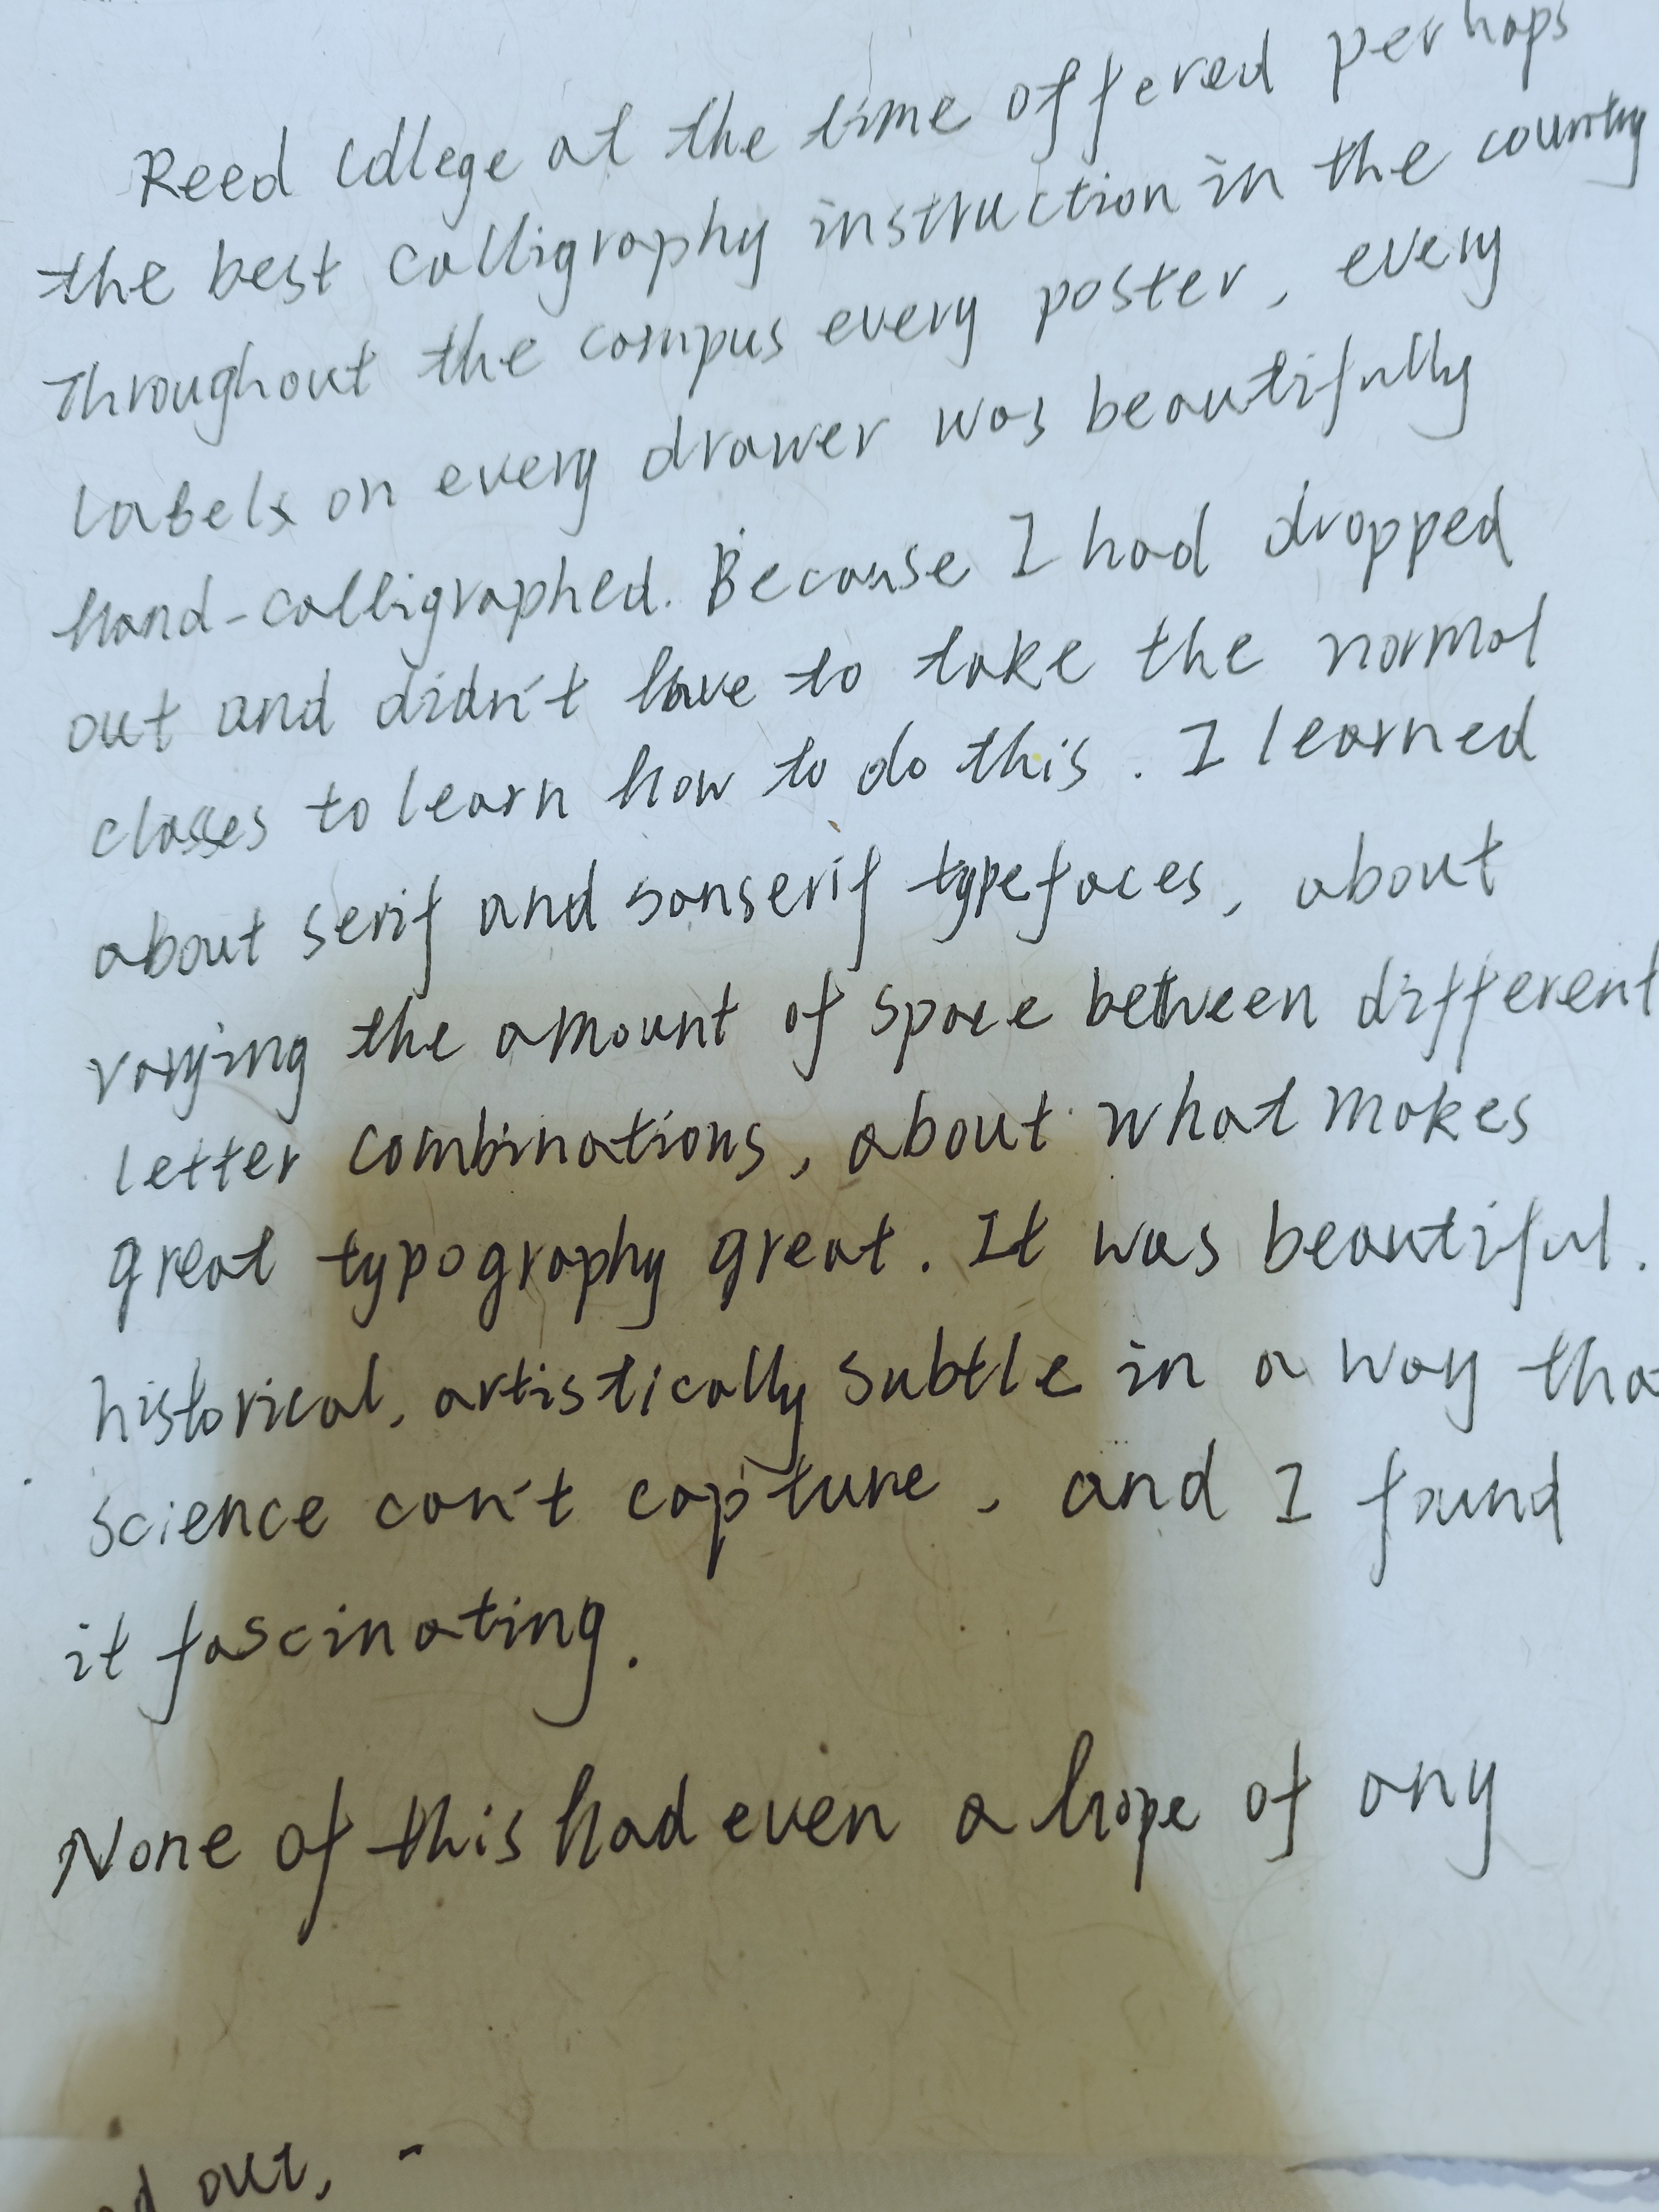 Reed College at the time offered perhaps
the best calligraphy instruction in the country
Throughout the campus every poster, every
labels on every drawer was beautifully
hand-calligraphed. Because I had dropped
out and didn't have to take the normal
classes to learn how to do this. I learned
about serif and sanserif typefaces, about
varying the amount of space between different
letter combinations, about what makes
great typography great. It was beautiful.
historical, artistically subtle in a way tha
science can't capture, and I found
it fascinating.
None of this had even a hope of any
out,